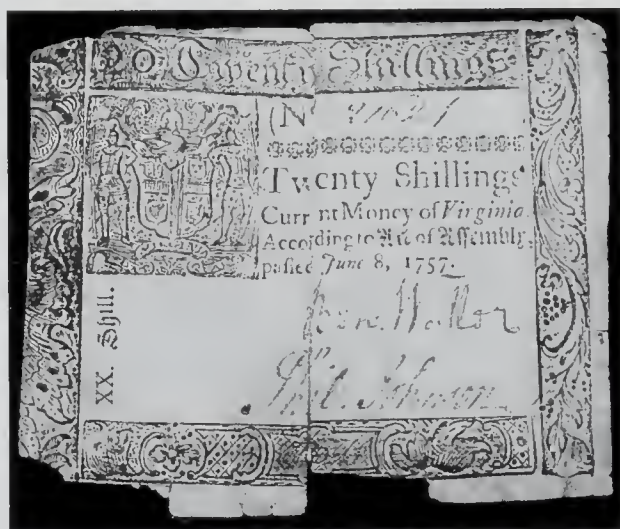 20 Twenty Shillings
(No
Twenty Shillings
Curr nt Money of Virginia.
According to Act of Assembly,
passed June 8, 1757.
Ben: Waller
Phil. Johnson
XX. Shill.